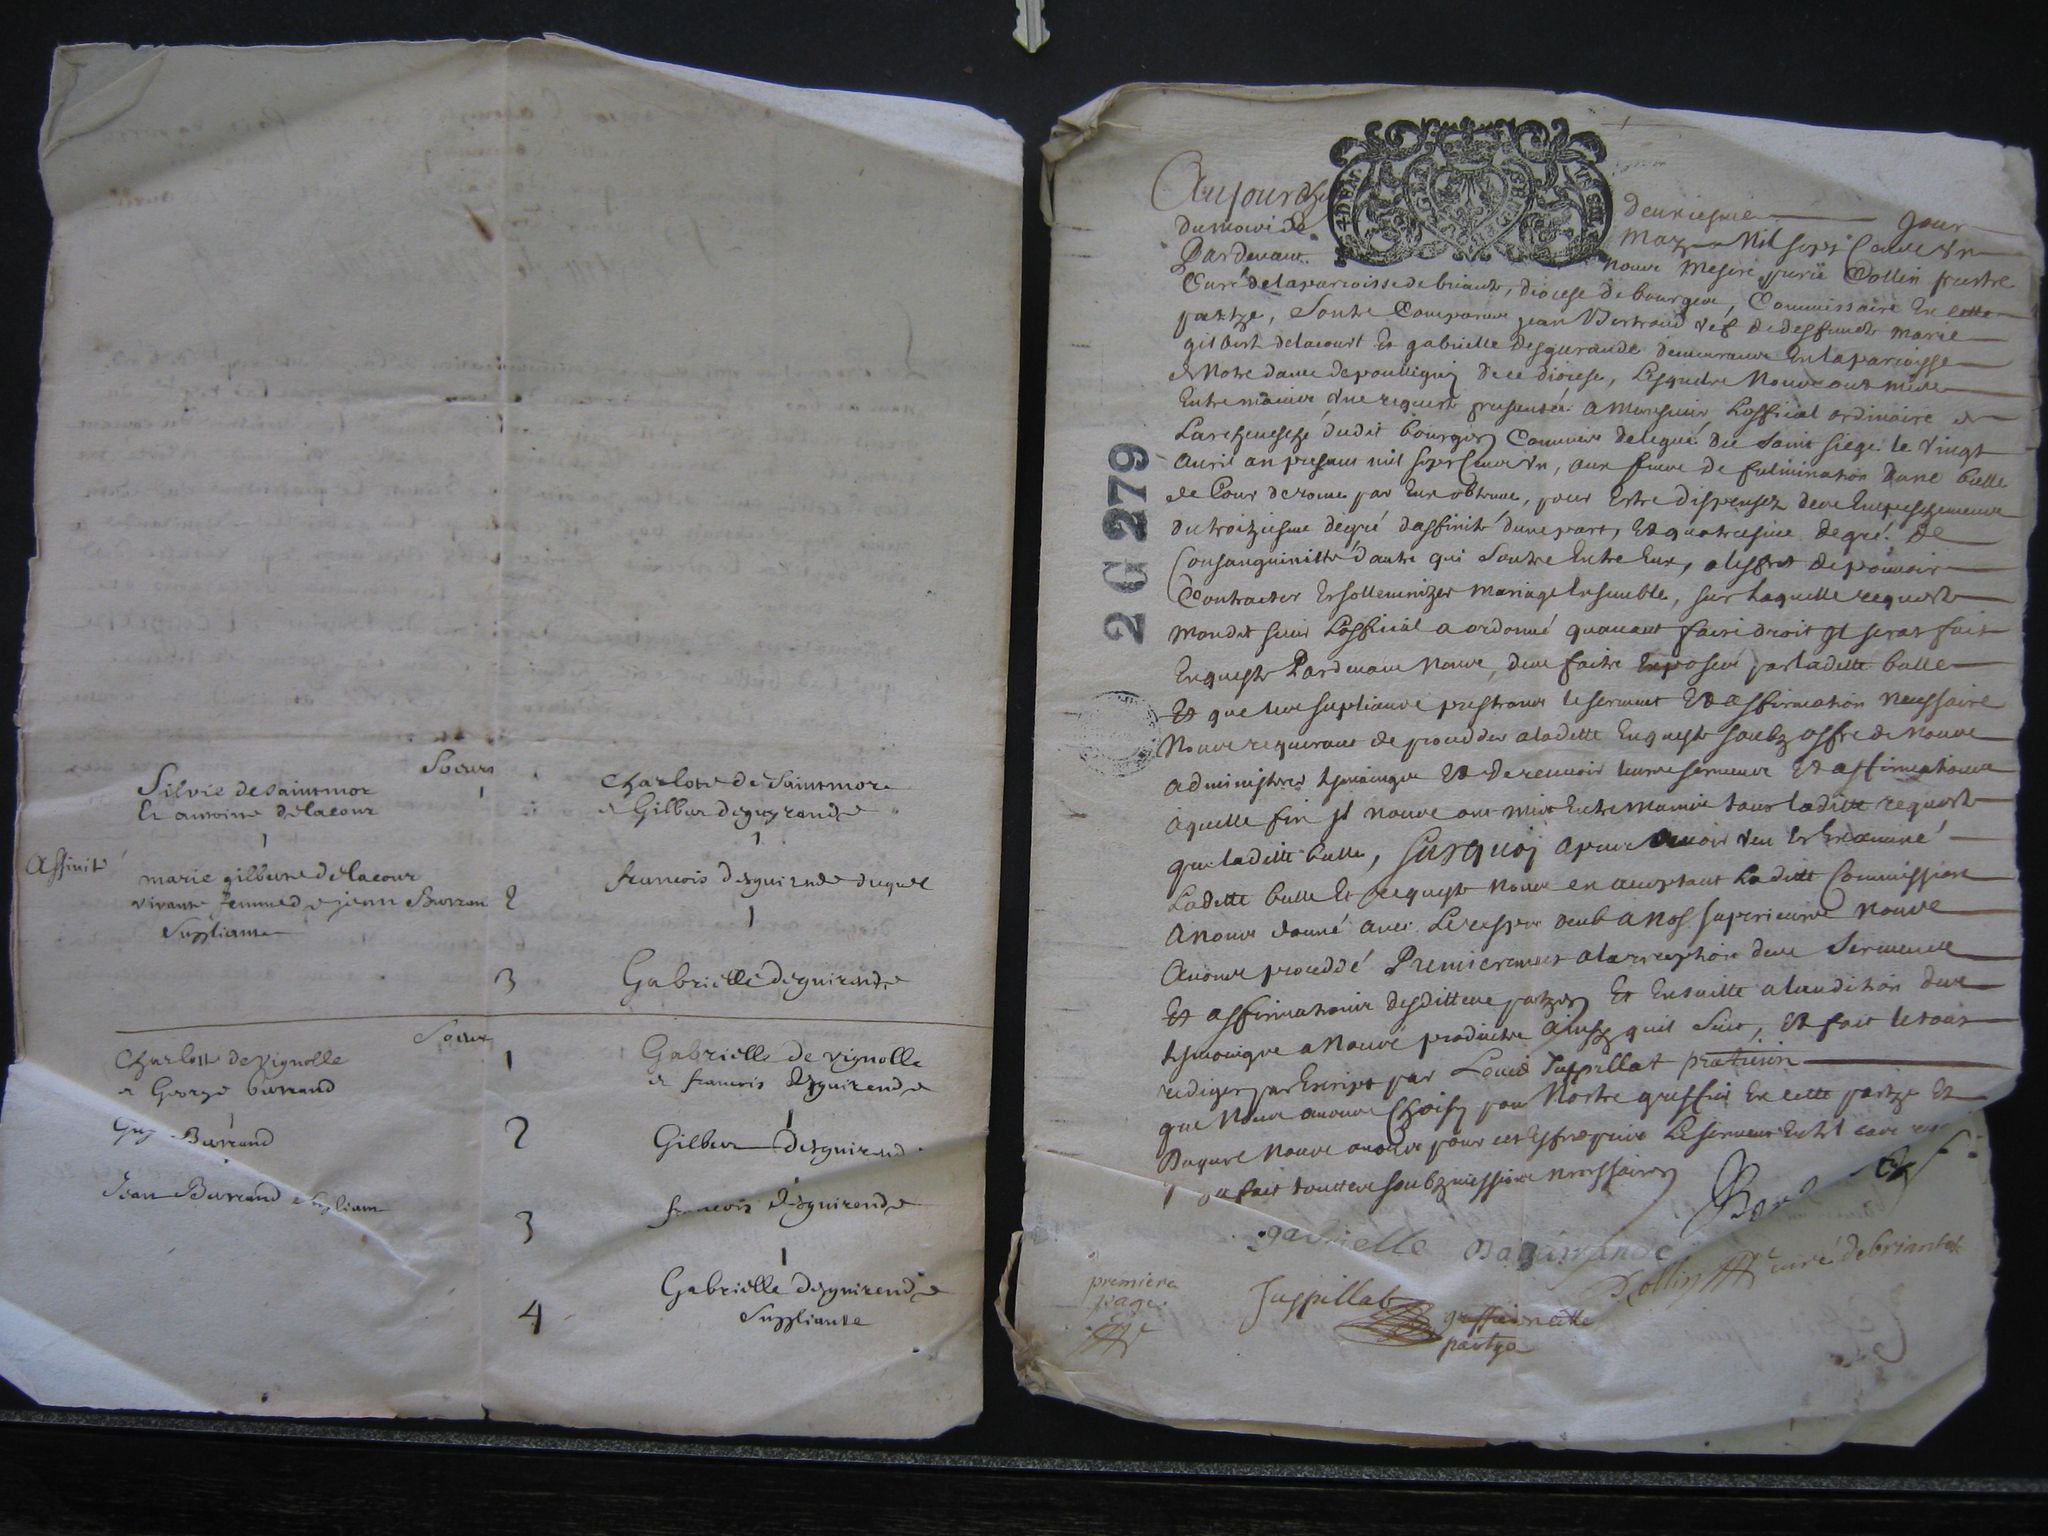 Soeurs
Silvie de saintmor 1 Charlote de Saintmore
Et antoine delacour et Gilber deguyrande
Affinité
marie gilberte delacour francois desguirande duquel
vivante femme de jean Berran 2
Suppliante
3 Gabrielle desguirende
Soeurs
Charlotte de vignolle 1 Gabrielle de vignolle
et George berrand et francois desguirende
Guy Berrand 2 Gilber desguirende
Jean Berrand supliant 3 francois desguirende
4 Gabrielle desguirende
Suppliante
2 G 279
Aujourdhuy deuxiesme jour
du mois de May Mil sept Cents un
Pardevant nous Mesire Collin prestre
Curé de la parroisse de briante, diocese de bourges, Commissaire En cette
partye, Sont Comparus jean Bertrand vef de desfuncte Marie
gilbert delacourt Et gabrielle desguirande demeurans En la parroisse
de Notre dame de poulligny de ce diocese, Lesquels Nous ont mis
Entre mains une requeste presentée a Monsieur Lofficial ordinaire de
Larcheveché dudit bourges Commis delegué du Saint Siege le vingt
avril an present mil sept Cents un, aux fins de fulmination dune bulle
de Cour de rome par Eux obtenue, pour Estre dispensez des Empeschements
du troiziesme degré dasfinité dune part, Et quatriesme degré de
Consanguinitté dautre qui Sont Entre Eux, a lesfet de pouvoir
Contracter Et sollemnizer mariage Ensemble, sur Laquelle requeste
mondit sieur Lofficial a ordonné quavant faire droit il serat fait
Enqueste Pardevant Nous, des faits Exposés par laditte bulle
Et que les supliants prestrons le serment Et asfirmation necessaire
Nous requerans de proceder a laditte Enqueste soubz offre de Nous
administrer tesmoings Et de recevoir leurs serments Et asfirmations
a quelle fin il nous ont mis Entre mains tant laditte requeste
que laditte bulle, surquoy apres avoir veu Et Examiné
Laditte bulle Et requeste Nous en acceptant Laditte Commission
a nous donné avec Le respect deub a Nos superieurs Nous
avons proceddé Premierement a la reception des Serments
Et asfirmations desdittes partyes Et Ensuitte a laudition des
tesmoings a Nous produits ainsy quil suit, Et fait le tout
rediger par Escript par Louis Juspillat praticien
que Nous avons Choisy pour Nostre greffier En cette partye Et
Duquel Nous avons pour cet Esfet pris Le serment
fait touttes soubzmissions necessaires
gabrielle
Collin curé de briante
premiere
page
Juspillat greffier en cette
partye